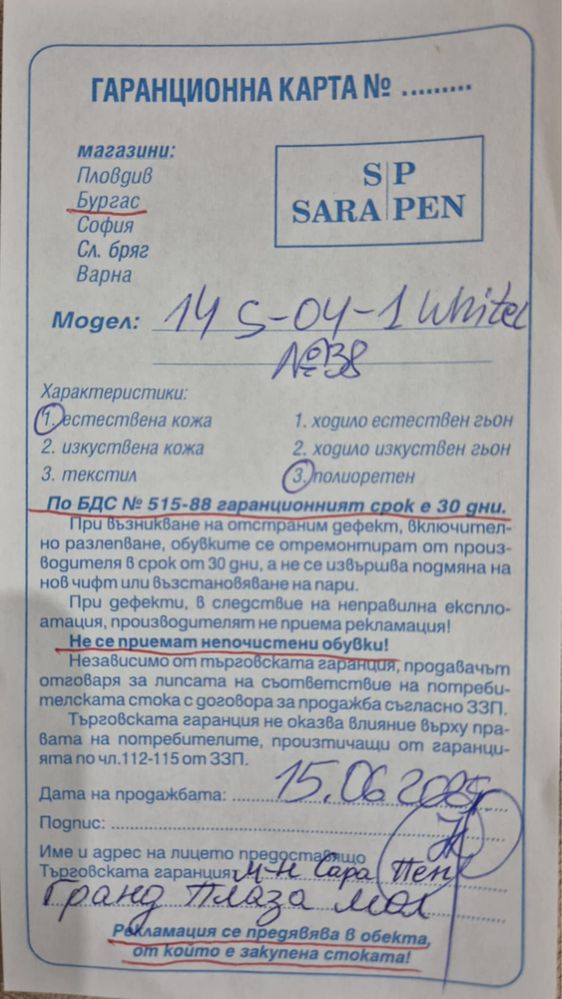 ГАРАНЦИОННА КАРТА № .........
магазини:
Пловдив
Бургас
София
Сл. бряг
Варна
S|P
SARA|PEN
Модел: 14 S-04-1 White
№38
Характеристики:
1. естествена кожа
2. изкуствена кожа
3. текстил
1. ходило естествен гьон
2. ходило изкуствен гьон
3. полиоретен
По БДС № 515-88 гаранционният срок е 30 дни.
При възникване на отстраним дефект, включител-
но разлепване, обувките се отремонтират от произ-
водителя в срок от 30 дни, а не се извършва подмяна на
нов чифт или възстановяване на пари.
При дефекти, в следствие на неправилна експло-
атация, производителят не приема рекламация!
Не се приемат непочистени обувки!
Независимо от търговската гаранция, продавачът
отговаря за липсата на съответствие на потреби-
телската стока с договора за продажба съгласно ЗЗП.
Търговската гаранция не оказва влияние върху пра-
вата на потребителите, произтичащи от гаранци-
ята по чл.112-115 от ЗЗП.
Дата на продажбата: 15.06 2025г
Подпис:
Име и адрес на лицето предоставящо
Търговската гаранция: М-н Сара Пен
Гранд Плаза мол
Рекламация се предявява в обекта,
от който е закупена стоката!